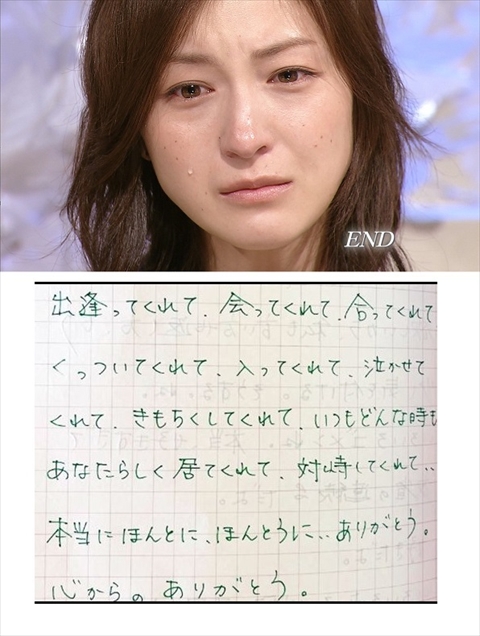 END
出逢ってくれて、会ってくれて、合ってくれて
くっついてくれて、入ってくれて、泣かせて
くれて、きもちくしてくれて、いつもどんな時も
あなたらしく居てくれて、対峙してくれて‥
本当にほんとに、ほんとうに‥ありがとう。
心からの ありがとう。